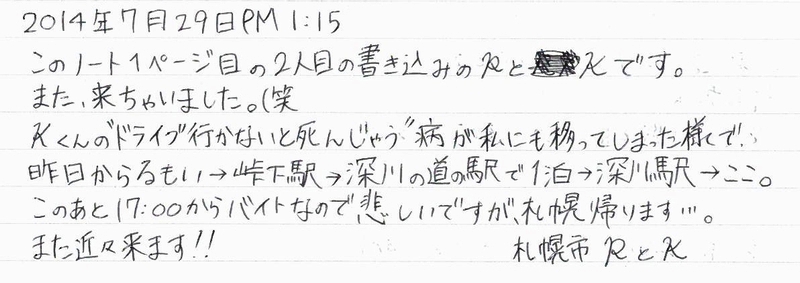 2014年7月29日PM 1:15
このノート1ページ目の2人目の書き込みのRとKです。
また、来ちゃいました。(笑
Kくんの"ドライブ行かないと死んじゃう"病が私にも移ってしまった様で…
昨日からるもい→峠下駅→深川の道の駅で1泊→深川駅→ここ。
このあと17:00からバイトなので悲しいですが、札幌帰ります…。
また近々来ます!!
札幌市 RとK